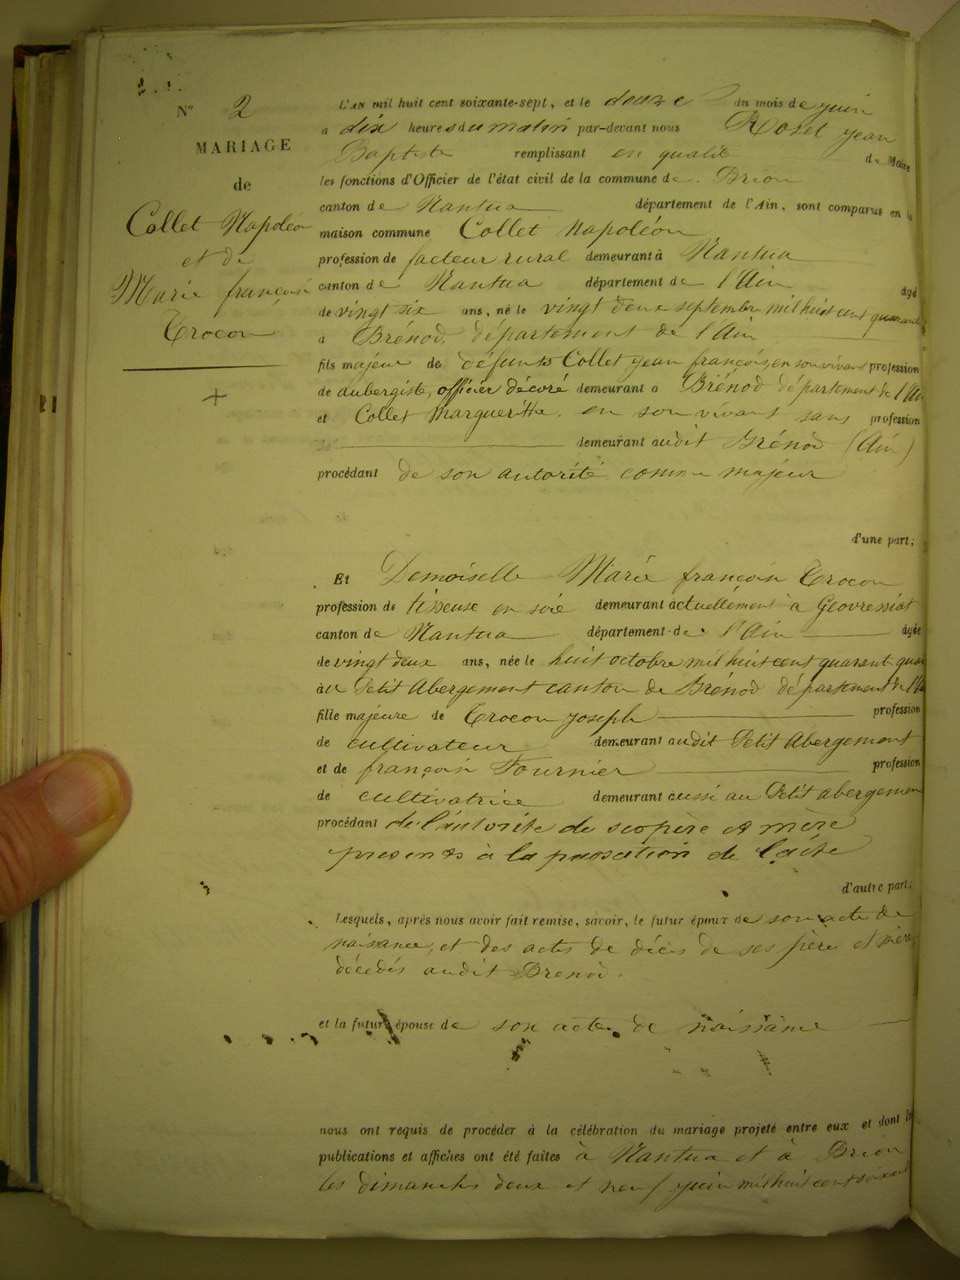 N° 2
MARIAGE
de
Collet Napoléon
et de
Marie françoise
Trocon
L'AN mil huit cent soixante-sept, et le douze du mois de juin
à dix heures du matin par-devant nous Rosel jean
Baptiste remplissant en qualité de Maire
les fonctions d'Officier de l'état civil de la commune de Brion
canton de Nantua département de l'Ain, sont comparus en la
maison commune Collet Napoléon
profession de facteur rural demeurant à Nantua
canton de Nantua département de l'Ain âgé
de vingt six ans, né le vingt deux septembre mil huit cent quarante
à Brénod, département de l'Ain
fils majeur de défunts Collet jean françois, en son vivant profession
de aubergiste, officier décoré demeurant à Brénod département de l'Ain
et Collet Margueritte, en son vivant sans profession
demeurant audit Brénod (Ain)
procédant de son autorité comme majeur
d'une part;
Et Demoiselle Marie françoise Trocon
profession de tisseuse en soie demeurant actuellement à Geovressiat
canton de Nantua département de l'Ain âgée
de vingt deux ans, née le huit octobre mil huit cent quarante quatre
au Petit Abergement canton de Brénod département de l'Ain
fille majeure de Trocon joseph profession
de cultivateur demeurant audit Petit Abergement
et de françoise Fournier profession
de cultivatrice demeurant aussi au Petit abergement
procédant de l'autorité de ses père et mère
présents à la passation de l'acte
d'autre part;
Lesquels, après nous avoir fait remise, savoir, le futur époux de son acte de
naissance, et des actes de décès de ses père et mère
décédés audit Brénod.
et la future épouse de son acte de naissance
nous ont requis de procéder à la célébration du mariage projeté entre eux et dont les
publications et affiches ont été faites à Nantua et à Brion
les dimanches deux et neuf juin mil huit cent soixante